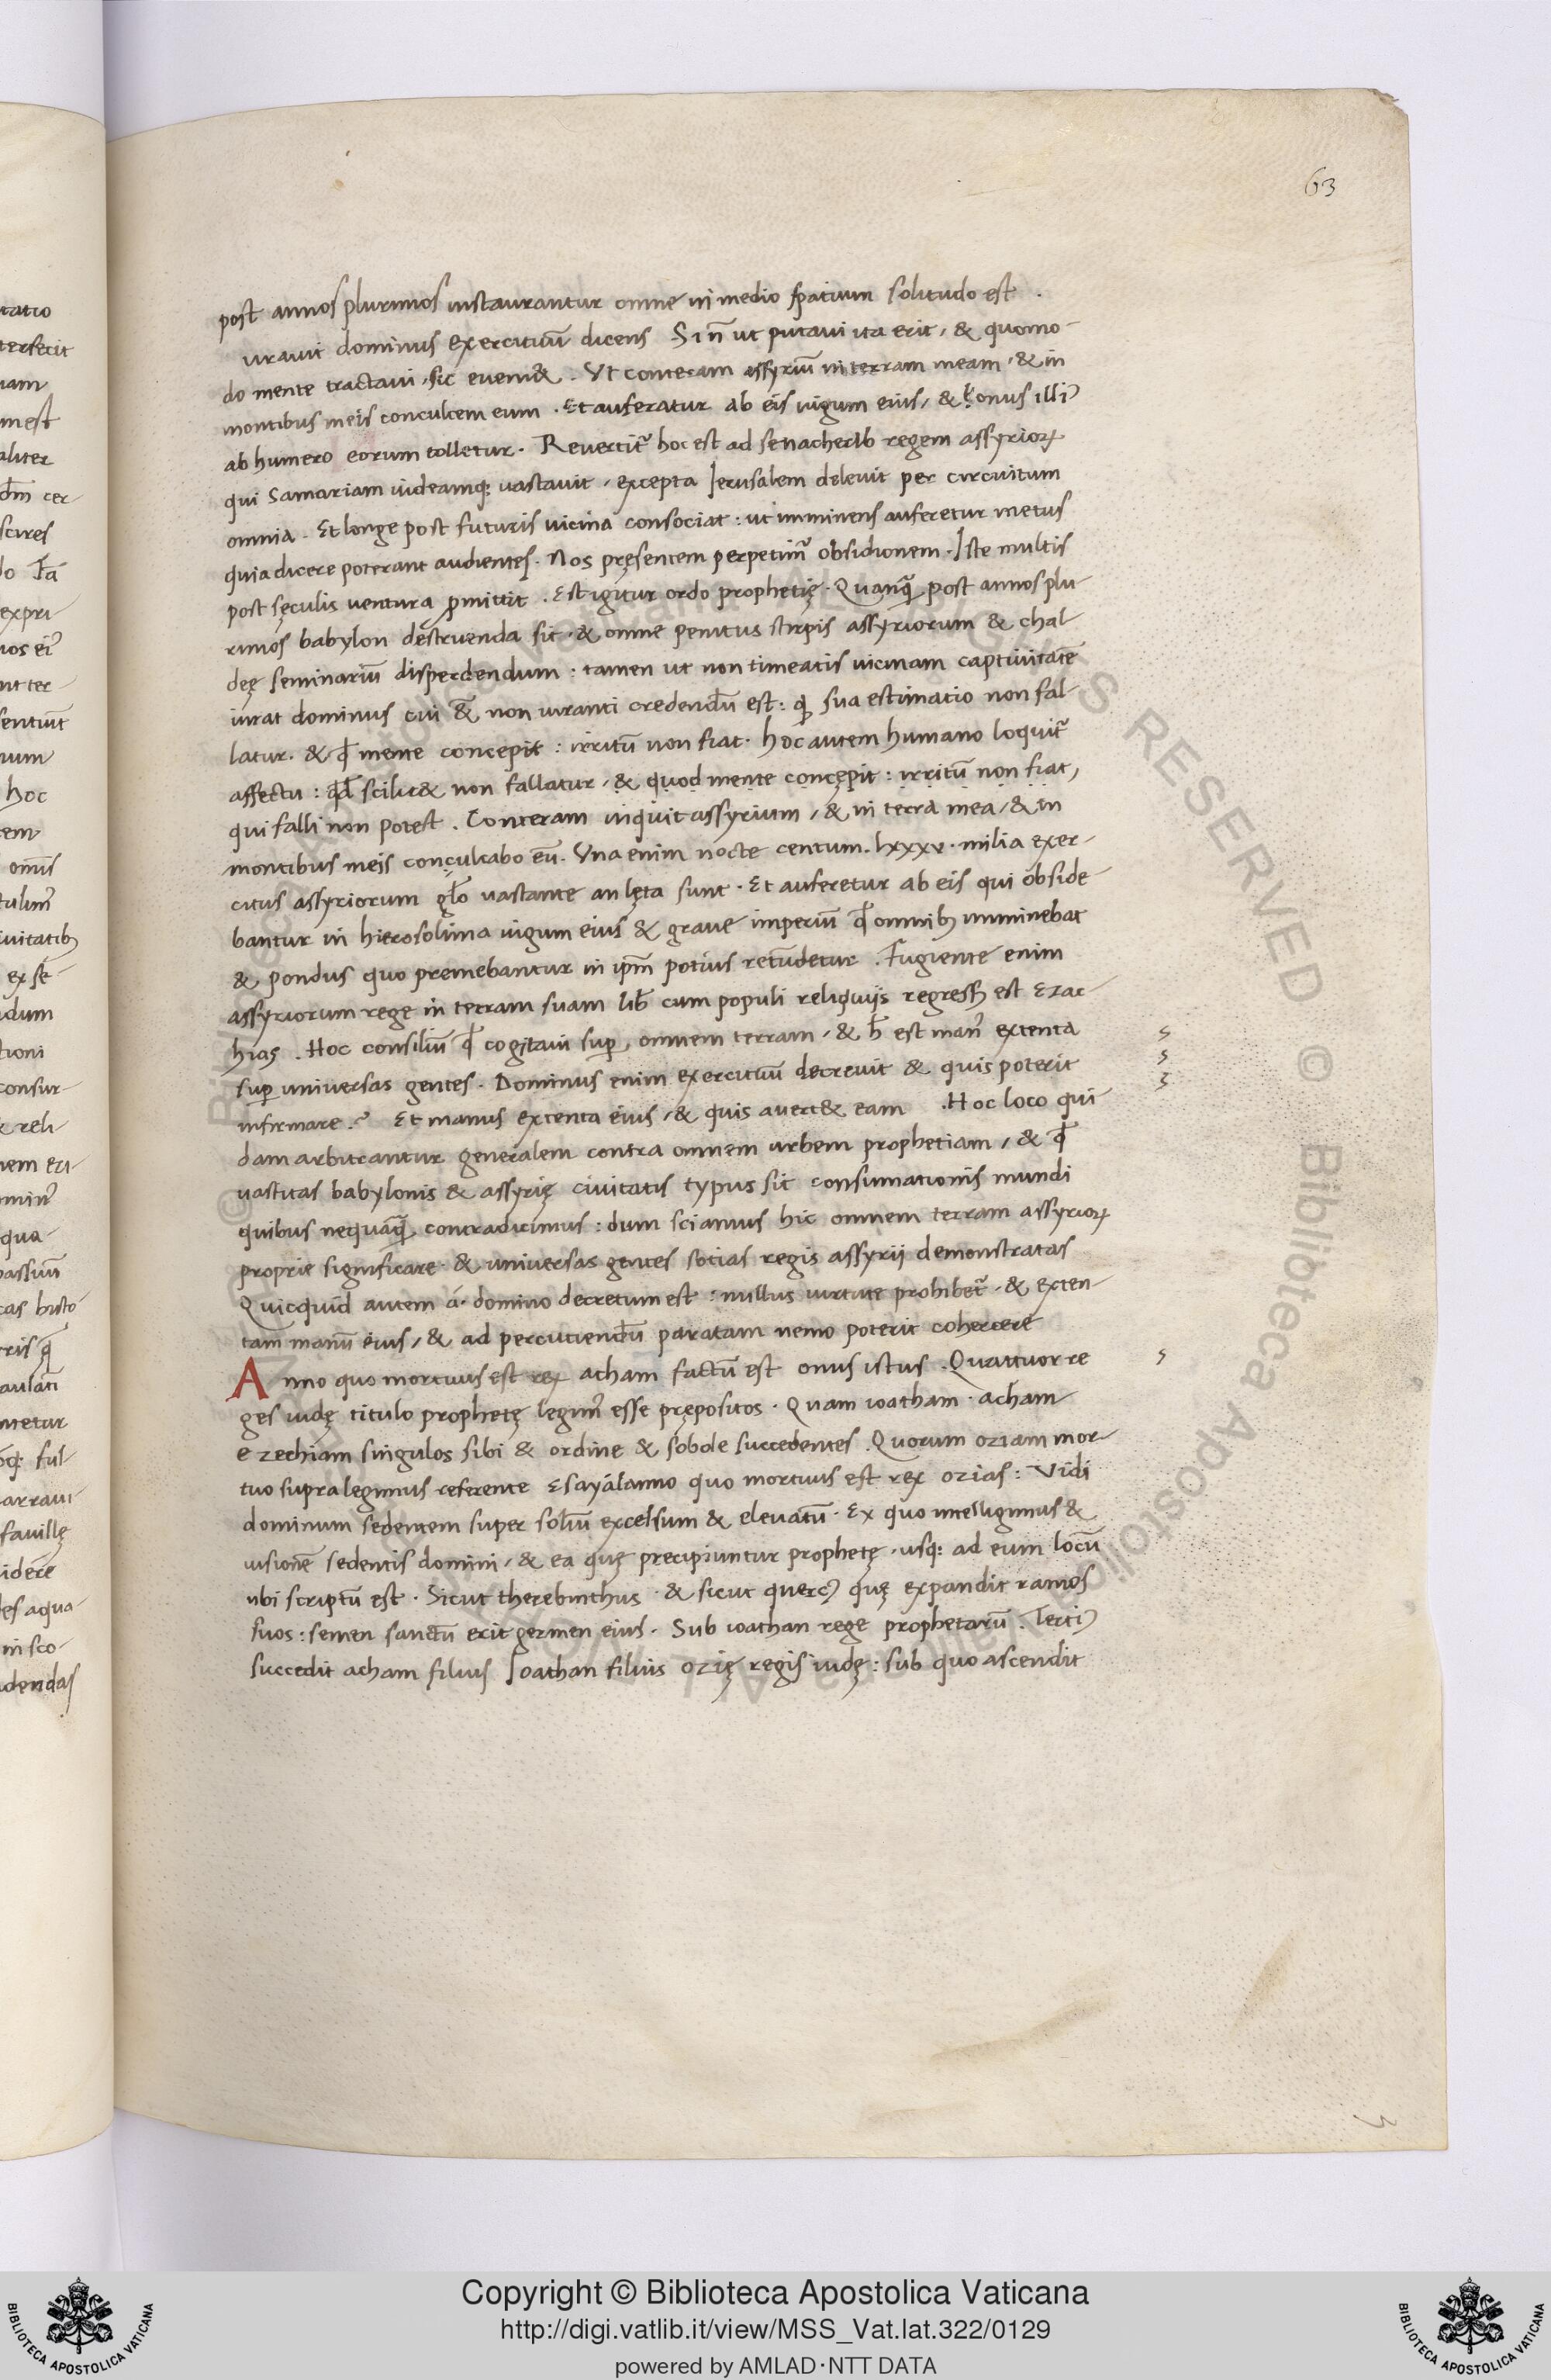 63
post annos plurimos instaurantur omne in medio spatium solitudo est .
iuravit dominus exercituū dicens Si n̄ ut putavi ita erit, & quomo-
do mente tractavi, sic eveni& . Ut conteram assyriū in terram meam, & in
montibus meis conculcem eum . Et auferatur ab eis iugum eius, & onus illiꝰ
ab humero eorum tolletur . Revertit᷑ hoc est ad senacherib regem assyrioꝝ
qui Samariam iudeamq: vastavit, excepta Jerusalem delevit per circuitum
omnia . Et longe post futuris vicina consociat : ut imminens auferetur metus
quia dicere poterant audientes . Nos pręsentem perpetim᷑ obsidionem . Iste multis
post sęculis ventura ꝓmittit . Est igitur ordo prophetię . Quanꝗ̄ post annos plu-
rimos babylon destruenda sit . & omne penitus stirpis assyriorum & chal-
deę seminariū disperdendum : tamen ut non timeatis vicinam captivitatē
iurat dominus cui & non iuranti credendū est : ꝙ sua estimatio non fal-
latur . & ꝙ mente concepit : irritū non fiat . hoc autem humano loquit᷑
affectu : ꝙ scilic& non fallatur, & quod mente concepit : irritū non fiat,
qui falli non potest . Conteram inquit assyrium, & in terra mea, & in
montibus meis conculcabo eū . Una enim nocte centum . lxxxv . milia exer-
citus assyriorum gło vastante an lęta sunt . Et auferetur ab eis qui obside-
bantur in hierosolima iugum eius & grave imperiū ꝙ omnibꝫ imminebat
& pondus quo premebantur in ipm̄ potius retūdetur . Fugiente enim
assyriorum rege in terram suam lib̄ cum populi reliquijs regressꝫ est Ezac
hias . Hoc consiliū ꝙ cogitavi suꝑ omnem terram, & h̄ est man᷑ extenta
suꝑ universas gentes . Dominus enim exercituū decrevit & quis poterit
infirmare .? Et manus extenta eius, & quis avert& eam . Hoc loco qui
dam arbitrantur generalem contra omnem urbem prophetiam, & ꝙ
vastitas babylonis & assyrię civitatis typus sit consumationis mundi
quibus nequaꝗ̄ contradicimus : dum sciamus hic omnem terram assyrioꝝ
proprie significare . & universas gentes socias regis assyrii demonstratas
Quicquid autem á . domino decretum est : nullus virtute prohibet᷑ . & exten-
tam manū eius, & ad percutiendū paratam nemo poterit cohercere
Anno quo mortuus est rex acham factū est onus istus . Quattuor re
ges iudę titulo prophetę legim᷑ esse prępositos . Quam ioatham . acham
ezechiam singulos sibi & ordine & sobole succedentes . Quorum oziam mor-
tuo supra legimus referente Esayálanno quo mortuus est rex ozias : Vidi
dominum sedentem super soliū excelsum & elevatū . Ex quo intelligimus &
visionē sedentis domini, & ea quę precipiuntur prophetę, usq: ad eum locū
ubi scriptū est . Sicut therebinthus . & sicut quercꝰ quę expandit ramos
suos : semen sanctū erit germen eius . Sub ioathan rege prophetarū . Tertiꝰ
succedit acham filius Joathan filius ozię regis iudę : sub quo ascendit
Copyright © Biblioteca Apostolica Vaticana
http://digi.vatlib.it/view/MSS_Vat.lat.322/0129
powered by AMLAD·NTT DATA